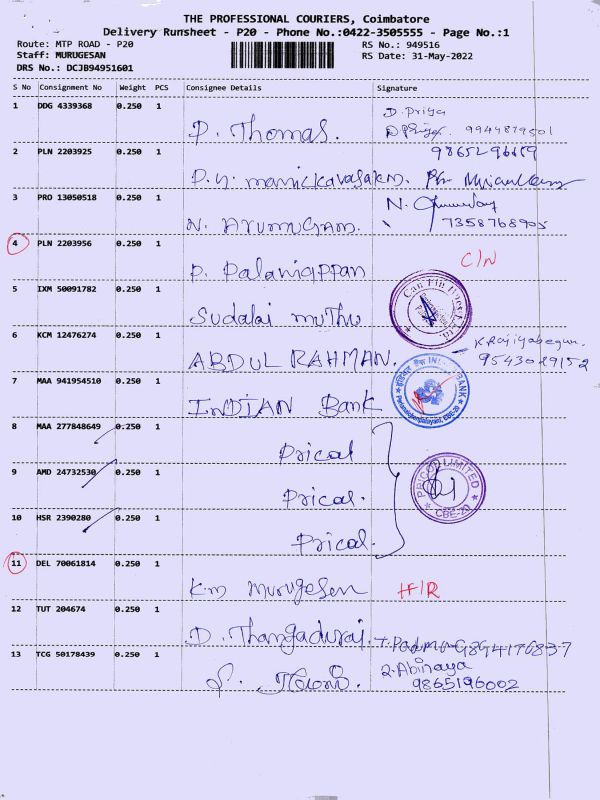 THE PROFESSIONAL COURIERS, Coimbatore
Delivery Runsheet - P20 - Phone No.:0422-3505555 - Page No.:1
Route: MTP ROAD - P20 RS No.: 949516
Staff: MURUGESAN RS Date: 31-May-2022
DRS No.: DCJB94951601
S No Consignment No Weight PCS Consignee Details Signature
1 DDG 4339368 0.250 1 P. Thomas. D. Priya
9944879501
2 PLN 2203925 0.250 1 9865296659
3 PRO 13050518 0.250 1 N. Arumugam. N.
7358768905
4 PLN 2203956 0.250 1 P. Palaniappan C/N
5 IXM 50091782 0.250 1 Sudalai muthu Can Fin
6 KCM 12476274 0.250 1 ABDUL RAHMAN. K Rajiyabegum.
9543029152
7 MAA 941954510 0.250 1 INDIAN Bank INDIAN BANK CBE-20
8 MAA 277848649 0.250 1 Prical
9 AMD 24732530 0.250 1 Prical. PRICOL LIMITED CBE-20
10 HSR 2390280 0.250 1 Prical.
11 DEL 70061814 0.250 1 K.m Murugesen H/R
12 TUT 204674 0.250 1 D. Thangadurai T. Padma 9894176837
13 TCG 50178439 0.250 1 S. 2. Abinaya
9865196002